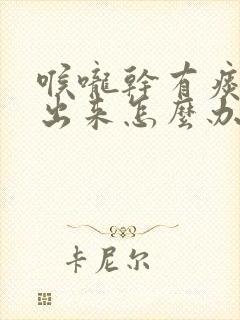 喉嚨幹有痰
出来怎麼办
卡尼尔